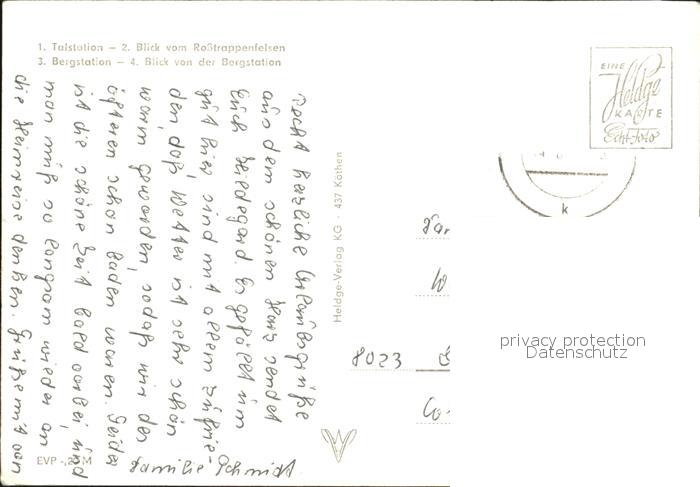 1. Talstation – 2. Blick vom Roßtrappenfelsen
3. Bergstation – 4. Blick von der Bergstation
EINE
Heldge
KARTE
Echt-Foto
k
Recht herzliche Urlaubsgrüße
aus dem schönen Harz sendet
Euch Hildegard. Es gefällt uns
gut hier sind mit allem zufrie-
den, daß Wetter ist sehr schön
warm geworden, sodaß wir des
öfteren schon baden waren. Leider
ist die schöne Zeit bald vorbei, und
man muß so langsam wieder an
die Heimreise denken. Grüße mit von
Familie Schmidt.
Heldge-Verlag KG · 437 Köthen
8023
privacy protection
Datenschutz
EVP -,25 M